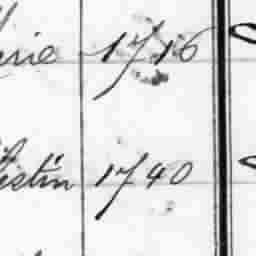 erie 1716
estin 1740